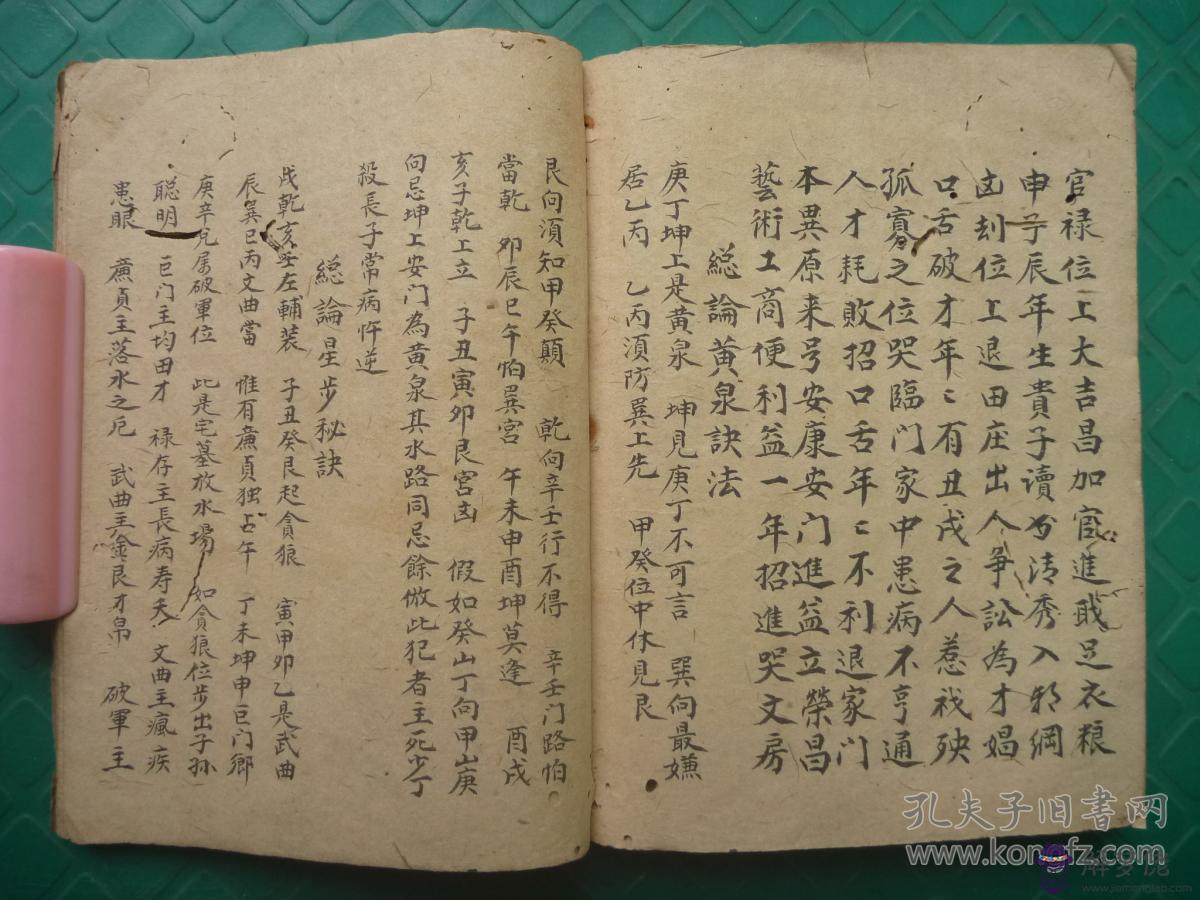 官禄位上大吉昌加官進戝足衣粮
申子辰年生貴子讀芀清秀入邦綱
凶刦位上退田庄出人争訟為才娼
口舌破才年〻有丑戌之人惹禍殃
孤寡之位哭臨門家中患病不亨通
人才耗敗招口舌年〻不利退家門
本異原来号安康安门進益立榮昌
藝術工商便利益一年招進哭文房
総論黄泉訣法
庚丁坤上是黄泉 坤見庚丁不可言 巽向最嫌
居乙丙 乙丙湏防巽上先 甲癸位中休見艮
艮向湏知甲癸顛 乾向辛壬行不得 辛壬门路怕
當乾 卯辰巳午怕巽宮 午未申酉坤莫逢 酉戌
亥子乾上立 子丑寅卯艮宮凶 假如癸山丁向甲山庚
向忌坤上安门為黄泉其水路同忌餘倣此犯者主死少丁
殺長子常病忤逆
総論星步秘訣
戌乾亥壬左輔裝 子丑癸艮起貪狼 寅甲卯乙是武曲
辰巽巳丙文曲當 惟有廉貞独占午 丁未坤申巨门鄉
庚辛兄属破軍位 此是宅墓放水場 如貪狼位步出子孫
聪明 巨门主均田才 禄存主長病寿夭 文曲主瘋疾
患眼 廉貞主落水之厄 武曲主金艮才帛 破軍主
孔夫子旧书网
www.kongfz.com
www.jiemengbab.com